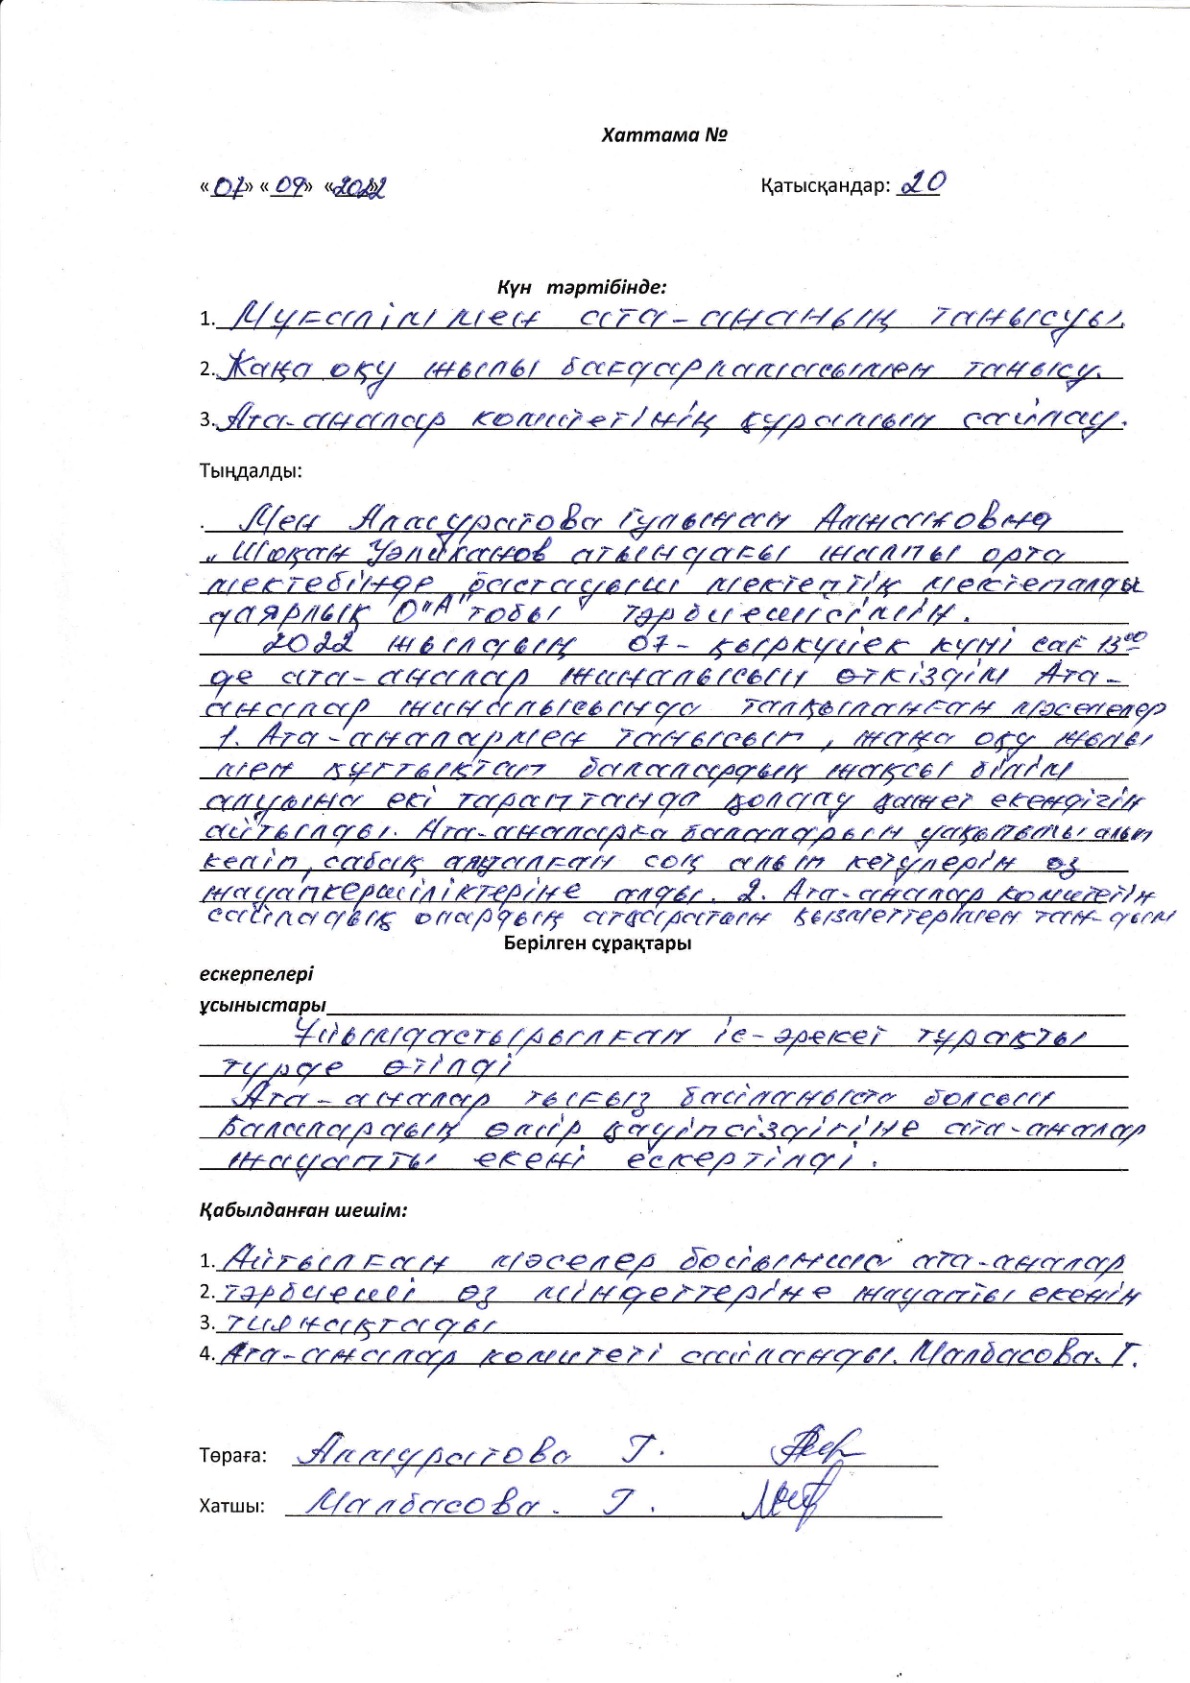 Хаттама №
«07» «09» «2022
Қатысқандар: 20
Күн тәртібінде:
1. Мұғалім мен ата-ананың танысуы.
2. Жаңа оқу жылы бағдарламасымен танысу.
3. Ата-аналар комитетінің құрамын сайлау.
Тыңдалды:
. Мен Алмуратова Гулжанан
"Шоқан Уәлиханов атындағы жалпы орта
мектебінде бастауыш мектептің мектепалды
даярлық 0 "А" тобы тәрбиешісімін.
2022 жылдың 07- қыркүйек күні сағ 13⁰⁰
де ата-аналар жиналысын өткіздім Ата-
аналар жиналысында талқыланған мәселелер
1. Ата-аналармен танысып, жаңа оқу жылы
мен құттықтап балалардың жақсы білім
алуына екі тараптанда қолдау қажет екендігін
айтылды. Ата-аналарға балаларын уақытты алып
келіп, сабақ аяқталған соң алып кетулерін өз
жауапкершіліктеріне алды. 2. Ата-аналар комитетін
сайладық олардың атқаратын қызметтерімен тан-дым
Берілген сұрақтары
ескерпелері
ұсыныстары
Ұйымдастырылған іс-әрекет тұрақты
түрде өтілді
Ата-аналар тығыз байланыста болсын
Балалардың өмір қауіпсіздігіне ата-аналар
жауапты екені ескертілді.
Қабылданған шешім:
1. Айтылған мәселер бойынша ата-аналар
2. тәрбиеші өз міндеттеріне жауапты екенін
3. тиянақтады
4. Ата-аналар комитеті сайланды. Малбасова. Г.
Төраға: Алмуратова Г.
Хатшы: Малбасова. Г.